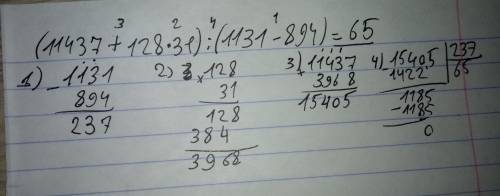 3 2 4 1
(11437 + 128·31) : (1131 - 894) = 65
1) 1131 2) 128 3) 11437 4) 15405 | 237
- 894 × 31 + 3968 1422 | 65
237 128 15405 1185
384 -1185
3968 0